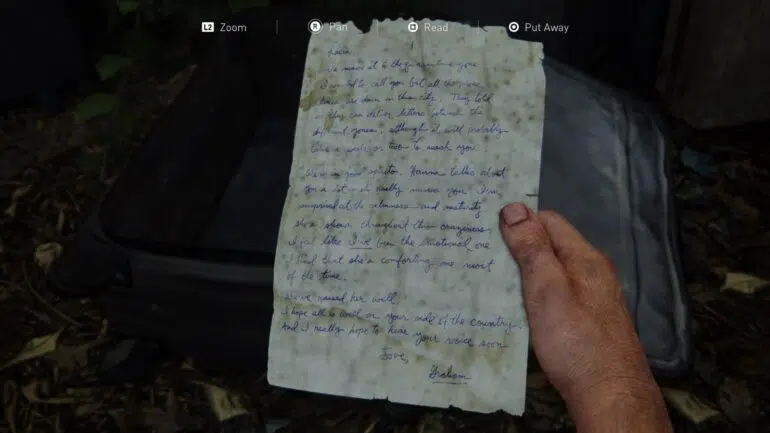 L2 Zoom R Pan Read Put Away
We made it to the quarantine zone.
I wanted to call you but all the phone
lines are down in this city. They told
us they can deliver letters between the
different zones, although it will probably
take a week or two to reach you.
We're in good spirits. Hanna talks about
you a lot - she really misses you. I'm
surprised at the calmness and maturity
she's shown throughout this craziness.
I feel like I've been the emotional one
and that she's comforting me most
of the time.
We've raised her well.
I hope all is well on your side of the country.
And I really hope to hear your voice soon.
Love,
Graham